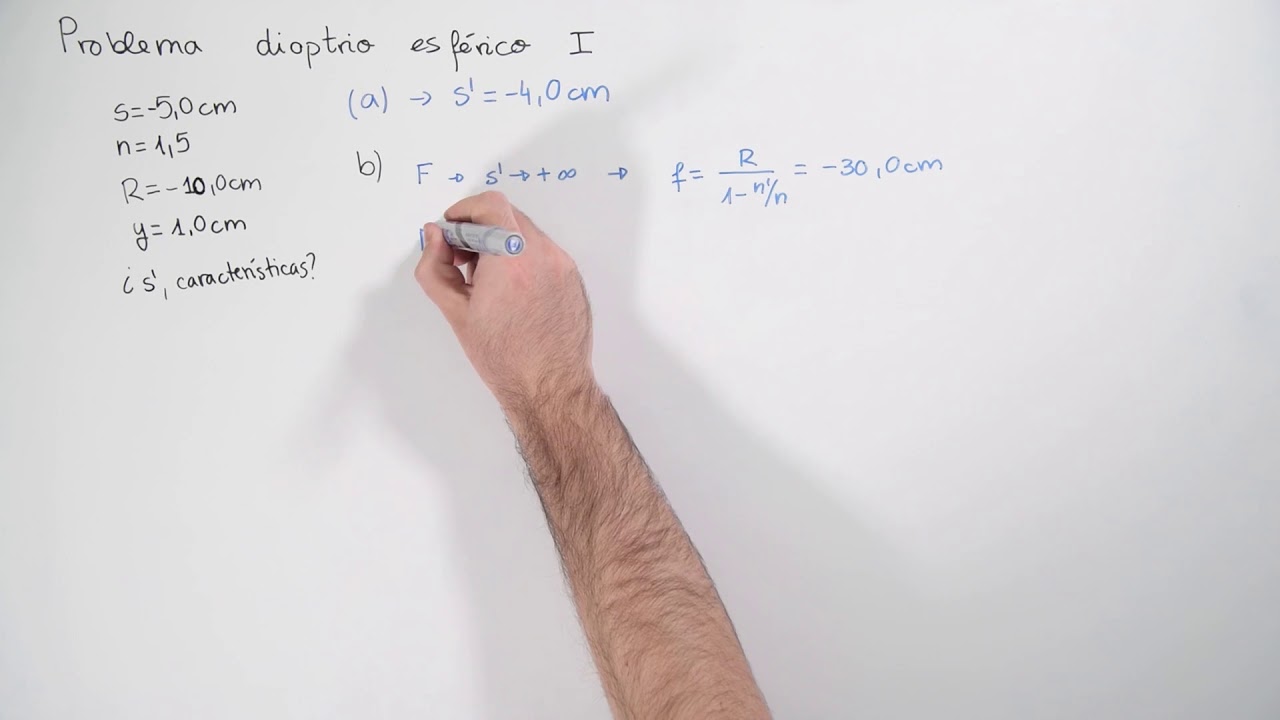 Problema dioptrio esférico I
s=-5,0cm
n=1,5
R=-10,0cm
y=1,0cm
¿s', características?
(a) → s'=-4,0cm
b) F → s'→+∞ → f= R/(1-n'/n) = -30,0cm